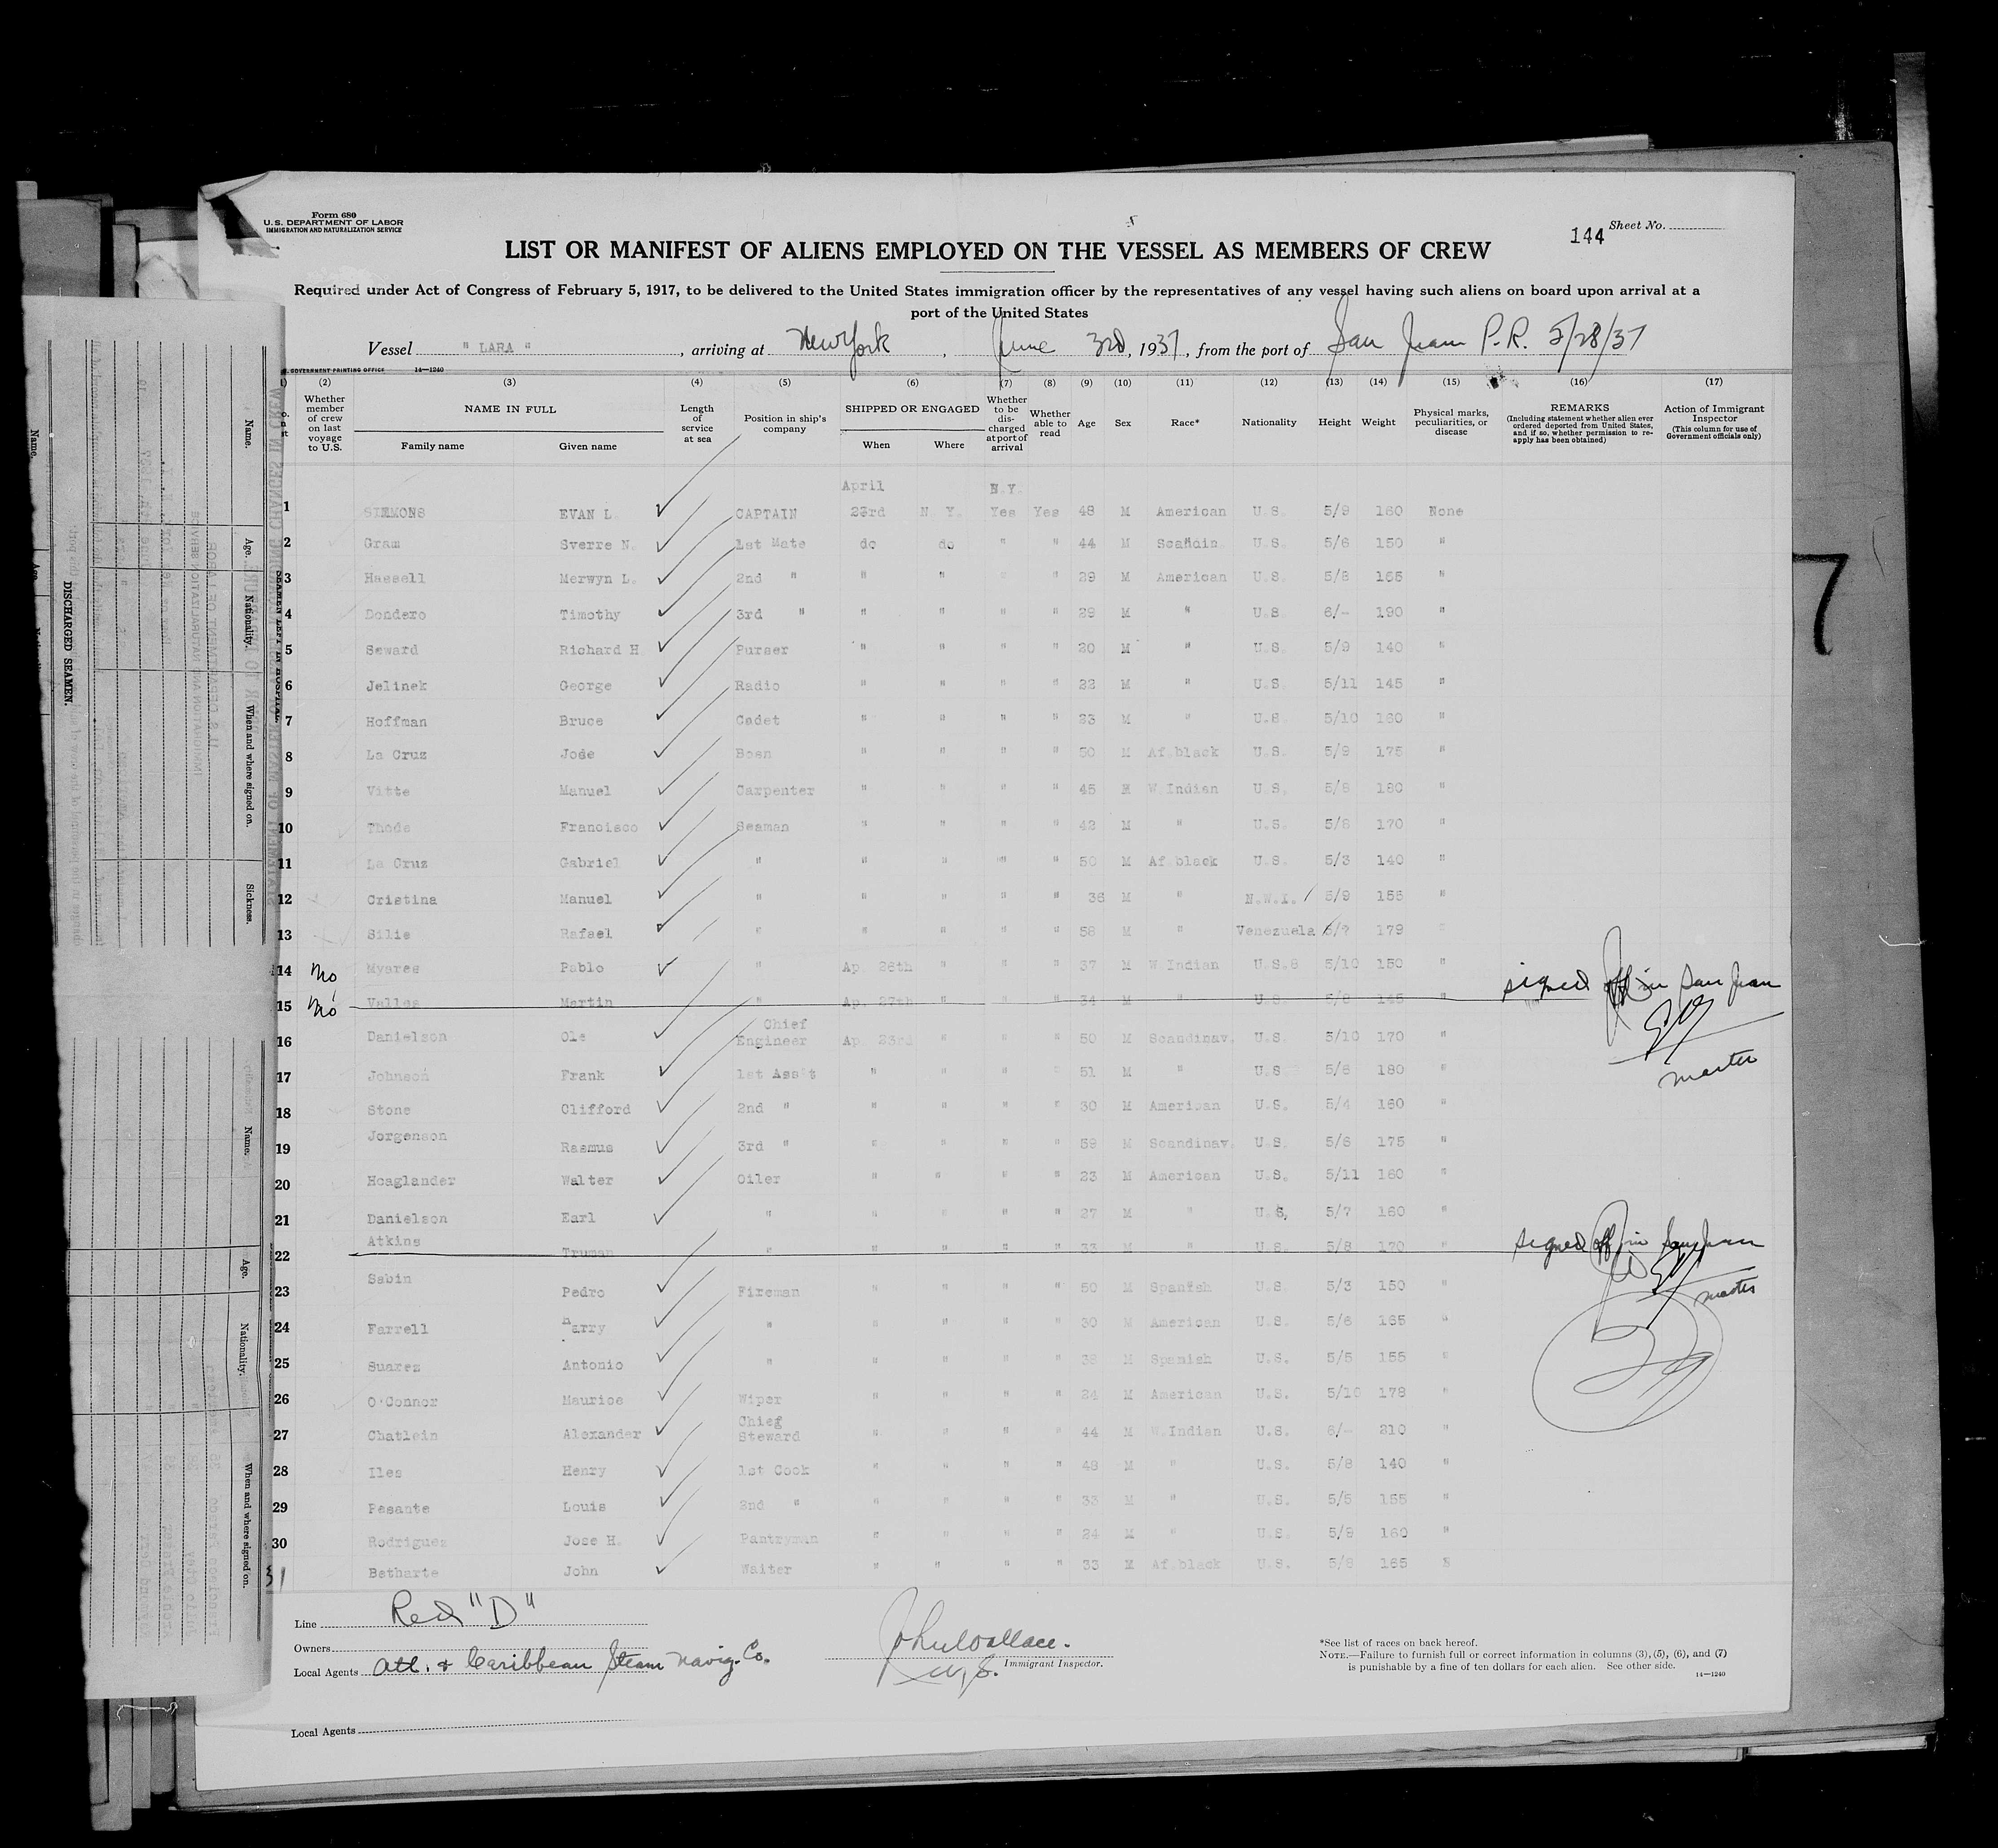 Form 680
U.S. DEPARTMENT OF LABOR
IMMIGRATION AND NATURALIZATION SERVICE
144 Sheet No.
LIST OR MANIFEST OF ALIENS EMPLOYED ON THE VESSEL AS MEMBERS OF CREW
Required under Act of Congress of February 5, 1917, to be delivered to the United States immigration officer by the representatives of any vessel having such aliens on board upon arrival at a
port of the United States
Vessel " LARA ", arriving at New York, June 3rd, 1937, from the port of San Juan P.R. 5/28/37
GOVERNMENT PRINTING OFFICE 14—1240
(2) (3) (4) (5) (6) (7) (8) (9) (10) (11) (12) (13) (14) (15) (16) (17)
Whether member of crew on last voyage to U.S. NAME IN FULL Family name Given name Length of service at sea Position in ship's company SHIPPED OR ENGAGED When Where Whether to be discharged at port of arrival Whether able to read Age Sex Race* Nationality Height Weight Physical marks, peculiarities, or disease REMARKS (Including statement whether alien ever ordered deported from United States, and if so, whether permission to reapply has been obtained) Action of Immigrant Inspector (This column for use of Government officials only)
April N.Y.
1 SIMMONS EVAN L. CAPTAIN 23rd N. Y. Yes Yes 48 M American U.S. 5/9 160 None
2 Gram Sverre N. 1st Mate do do " " 44 M Scandin U.S. 5/6 150 "
3 Hassell Merwyn L. 2nd " " " " " 29 M American U.S. 5/8 155 "
4 Dondero Timothy 3rd " " " " " 29 M " U.S 6/- 190 "
5 Seward Richard H. Purser " " " " 20 M " U.S. 5/9 140 "
6 Jelinek George Radio " " " " 22 M " U.S. 5/11 145 "
7 Hoffman Bruce Cadet " " " " 23 M " U.S 5/10 160 "
8 La Cruz Jode Bosn " " " " 50 M Af.black U.S. 5/9 175 "
9 Vitte Manuel Carpenter " " " " 45 M W.Indian U.S. 5/8 180 "
10 Thode Francisco Seaman " " " " 42 M " U.S. 5/8 170 "
11 La Cruz Gabriel " " " " " 50 M Af.black U.S. 5/3 140 "
12 Cristina Manuel " " " " " 36 M " N.W.I. 5/9 155 "
13 Silie Rafael " " " " " 58 M " Venezuela 5/? 179 "
14 No Myares Pablo " Ap. 26th " " " 37 M W.Indian U.S.S 5/10 150 "
15 No Valles Martin " Ap. 27th " " " 34 M " U.S. 5/8 145 " signed off in San Juan
master
16 Danielson Ole Chief Engineer Ap. 23rd " " " 50 M Scandinav. U.S. 5/10 170 "
17 Johnson Frank 1st Asst " " " " 51 M " U.S 5/8 180 "
18 Stone Clifford 2nd " " " " " 30 M American U.S. 5/4 160 "
19 Jorgenson Rasmus 3rd " " " " " 59 M Scandinav. U.S. 5/8 175 "
20 Hoaglander Walter Oiler " " " " 23 M American U.S. 5/11 160 "
21 Danielson Earl " " " " " 27 M " U.S. 5/7 160 "
22 Atkins Truman " " " " " 33 M " U.S. 5/8 170 " signed off in San Juan
master
23 Sabin Pedro Fireman " " " " 50 M Spanish U.S. 5/3 150 "
24 Farrell Harry " " " " " 30 M American U.S. 5/6 165 "
25 Suarez Antonio " " " " " 38 M Spanish U.S. 5/5 155 "
26 O'Connor Maurice Wiper " " " " 24 M American U.S. 5/10 178 "
27 Chatlein Alexander Chief Steward " " " " 44 M W.Indian U.S. 6/- 210 "
28 Iles Henry 1st Cook " " " " 48 M " U.S. 5/8 140 "
29 Pesante Louis 2nd " " " " " 33 M " U.S. 5/5 155 "
30 Rodriguez Jose H. Pantryman " " " " 24 M " U.S. 5/9 160 "
31 Betharte John Waiter " " " " 33 M Af.black U.S. 5/8 165 "
Line Red "D"
Owners
Local Agents Atl. & Caribbean Steam Navig. Co.
John Wallace.
Immigrant Inspector.
*See list of races on back hereof.
NOTE.—Failure to furnish full or correct information in columns (3), (5), (6), and (7)
is punishable by a fine of ten dollars for each alien. See other side.
14—1240
Local Agents
7
DISCHARGED SEAMEN.
Name.
Age.
Nationality.
When and where signed on.
Sickness.
Name.
Age.
Nationality.
When and where signed on.